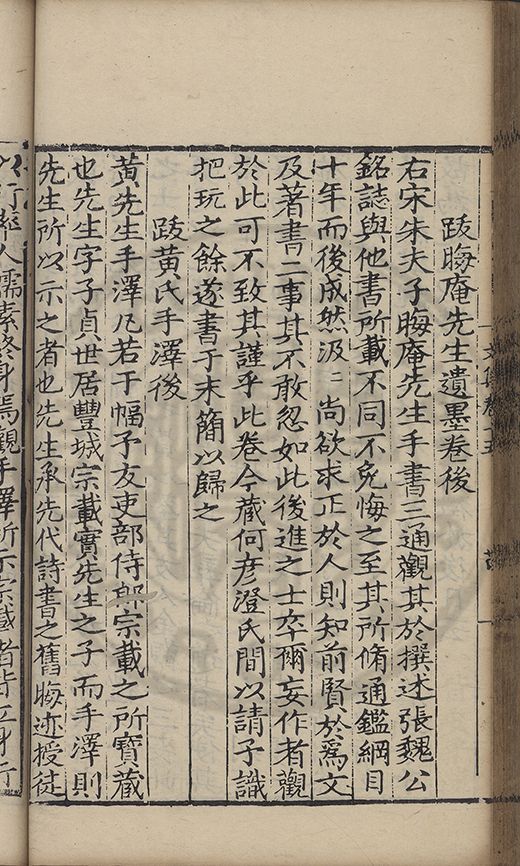 跋晦庵先生遺墨卷後
右宋朱夫子晦庵先生手書三通觀其於撰述張魏公
銘誌與他書所載不同不免悔之至其所脩通鑑綱目
十年而後成然汲〻尚欲求正於人則知前賢於爲文
及著書二事其不敢忽如此後進之士卒爾妄作者觀
於此可不致其謹乎此卷今藏何彦澄氏間以請予識
把玩之餘遂書于末簡以歸之
跋黄氏手澤後
黄先生手澤凡若干幅予友吏部侍郎宗載之所寶藏
也先生字子貞世居豐城宗載實先生之子而手澤則
先生所以示之者也先生承先代詩書之舊晦迹授徒
以行 人儒素終身焉觀手澤所示宗載者皆立身行